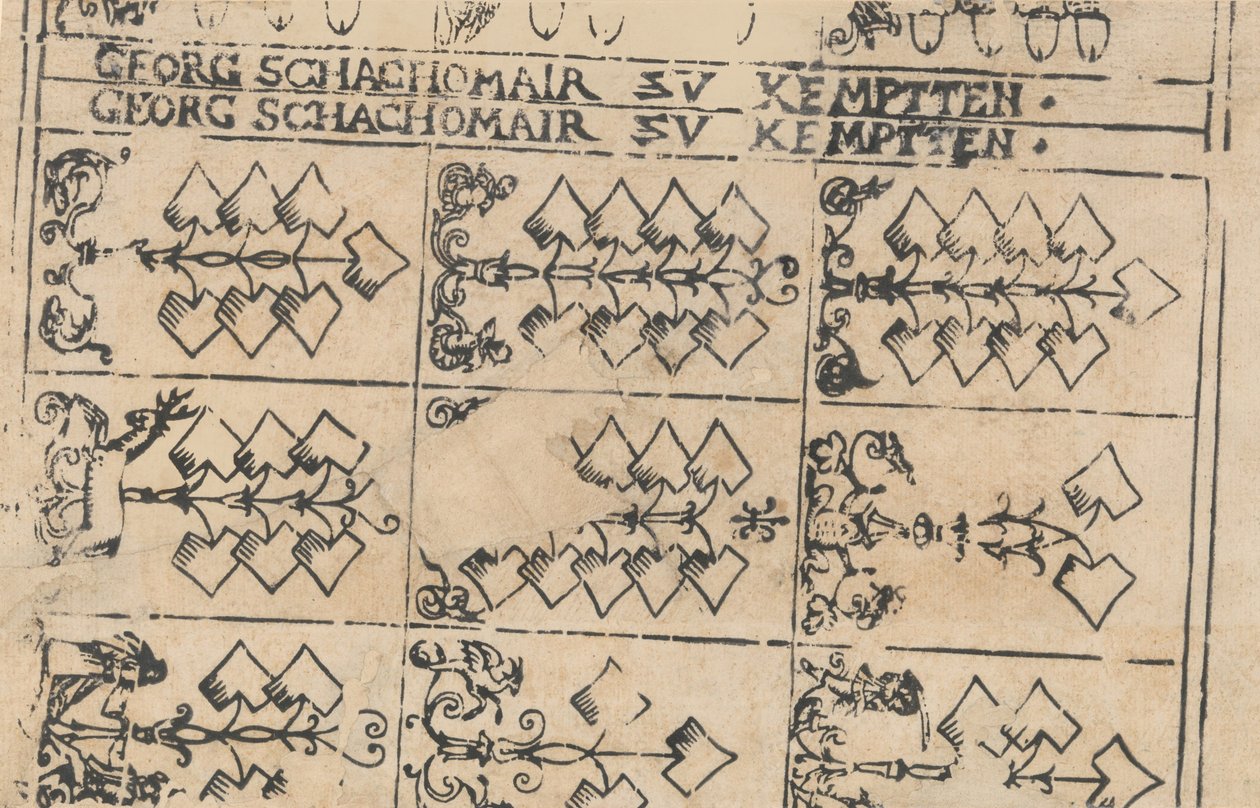 GEORG SCHACHOMAIR SV KEMPTTEN .
GEORG SCHACHOMAIR SV KEMPTTEN .